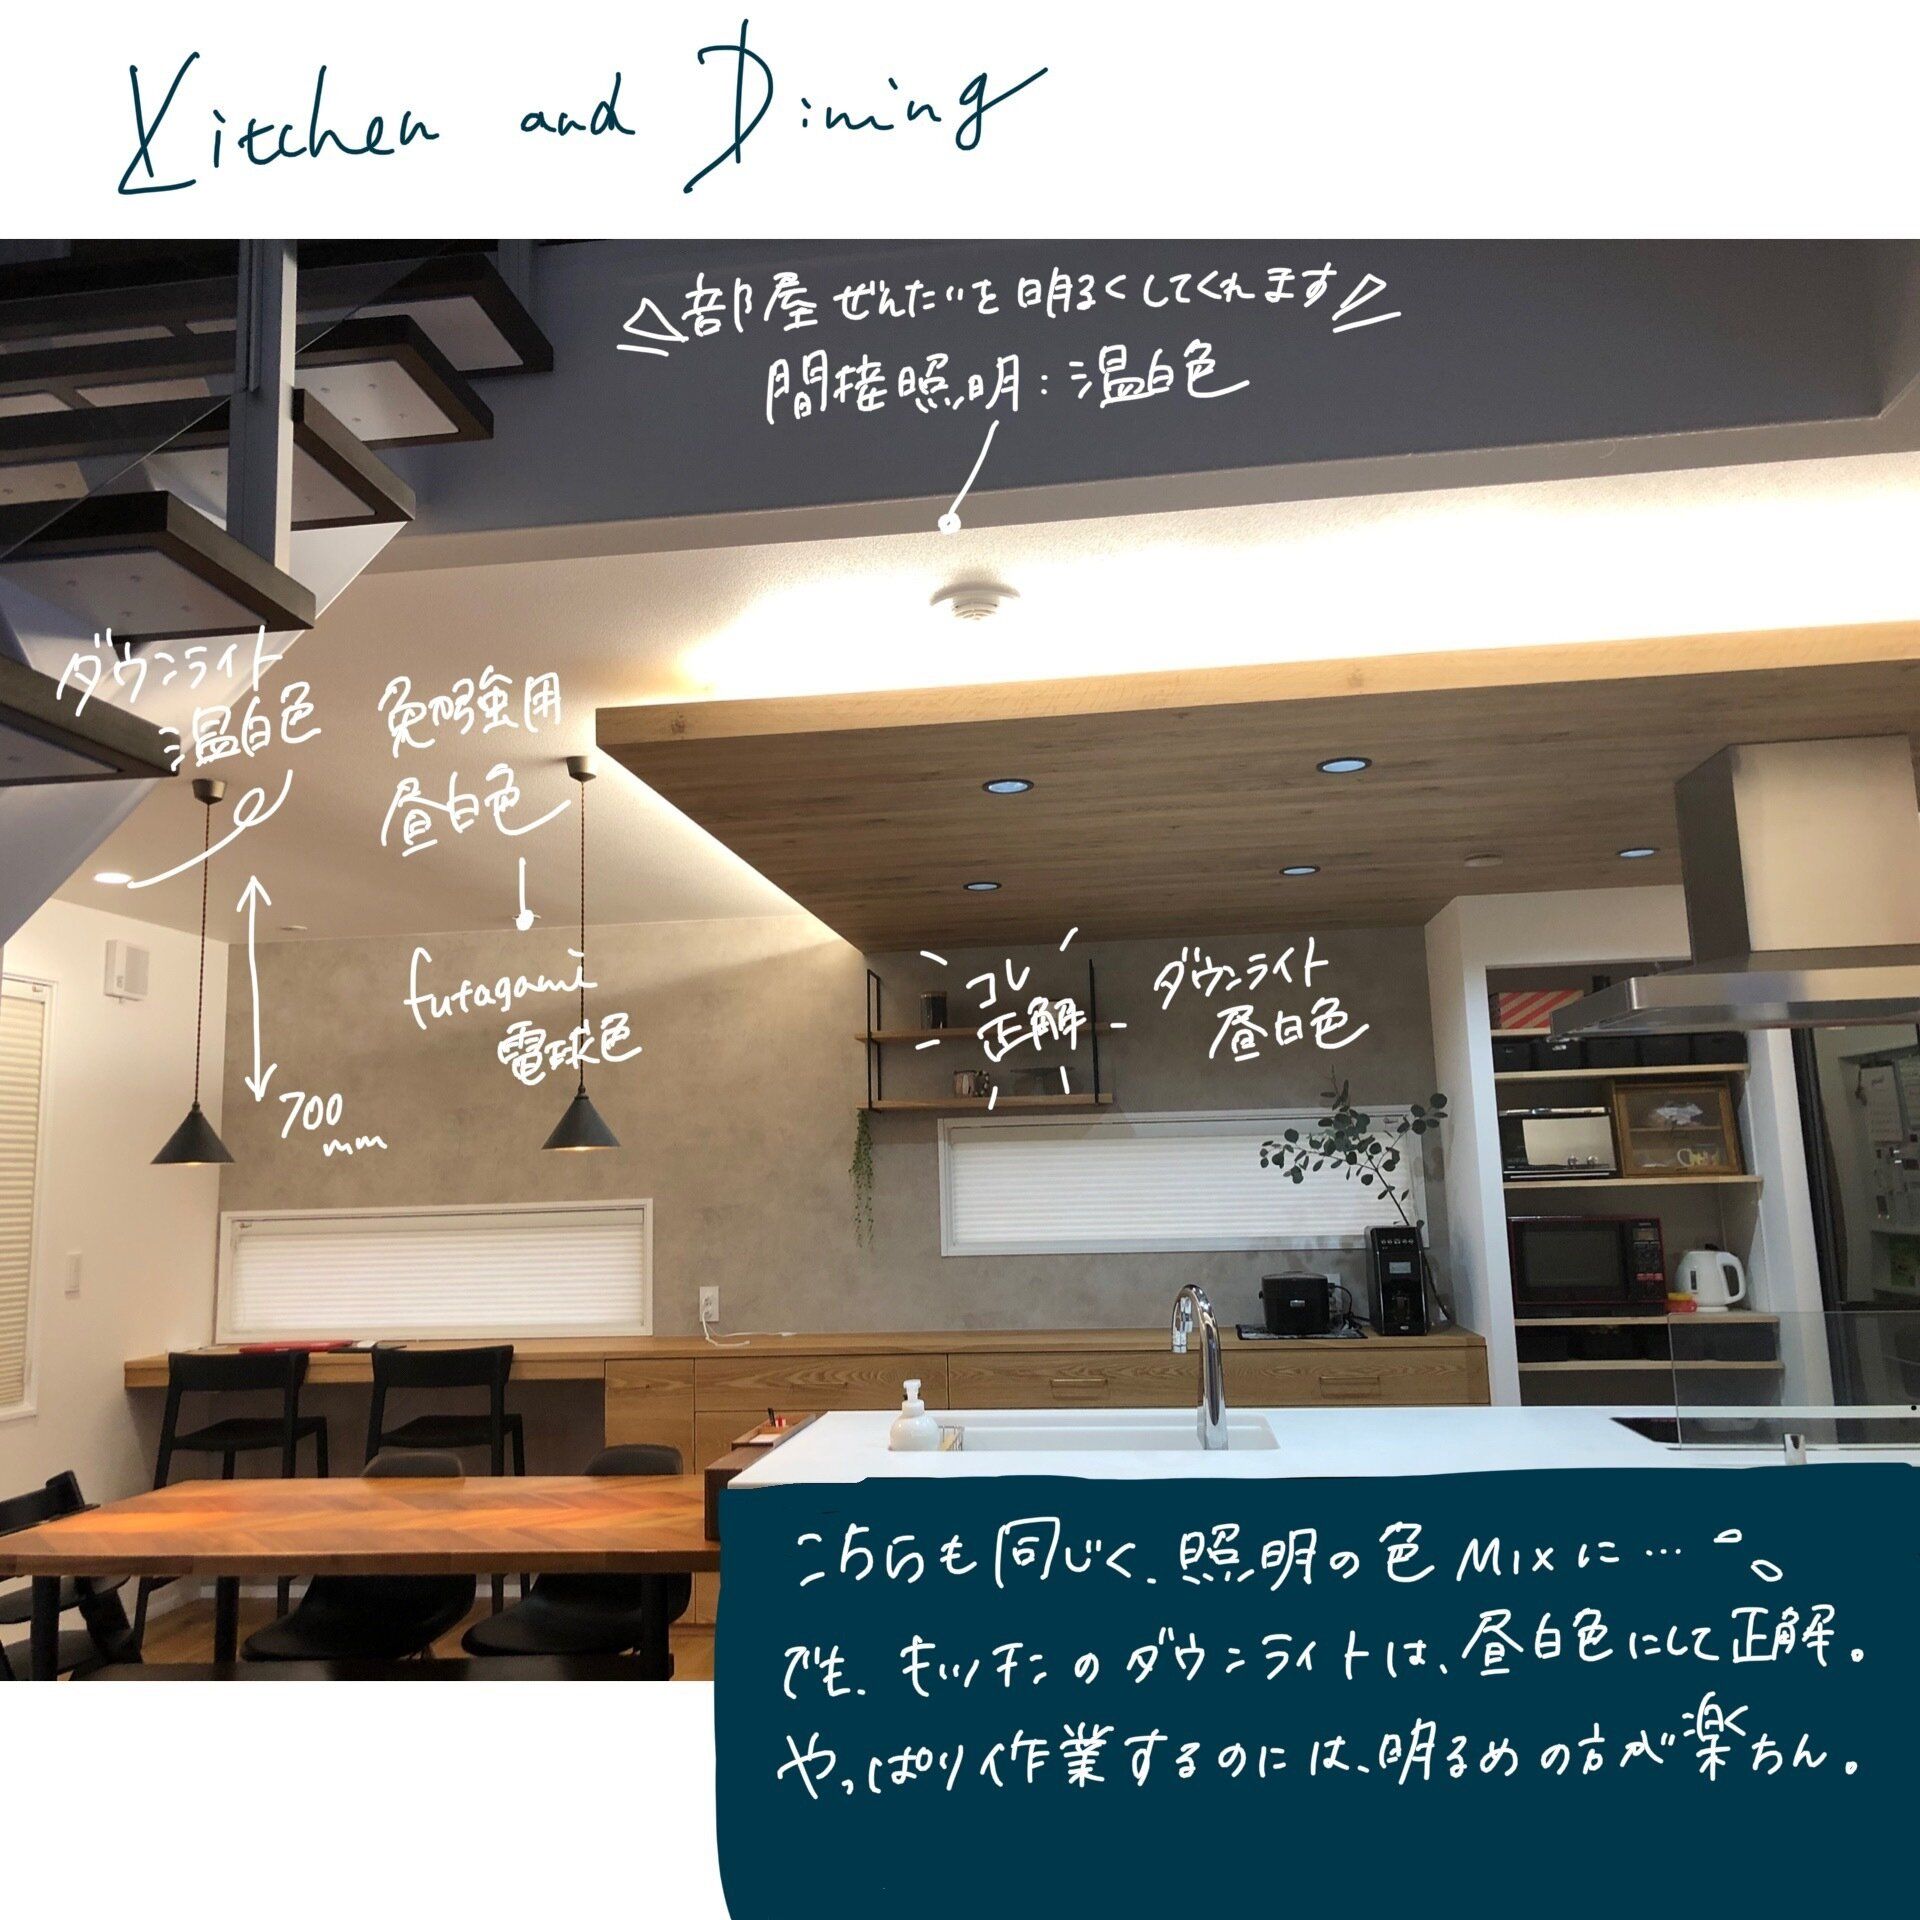 Kitchen and Dining
部屋ぜんたいを明るくしてくれます
間接照明:温白色
ダウンライト
温白色
勉強用
昼白色
futagami
電球色
700
mm
コレ
正解
ダウンライト
昼白色
こちらも同じく、照明の色Mixに…
でも、キッチンのダウンライトは、昼白色にして正解。
やっぱり作業するのには、明るめの方が楽ちん。